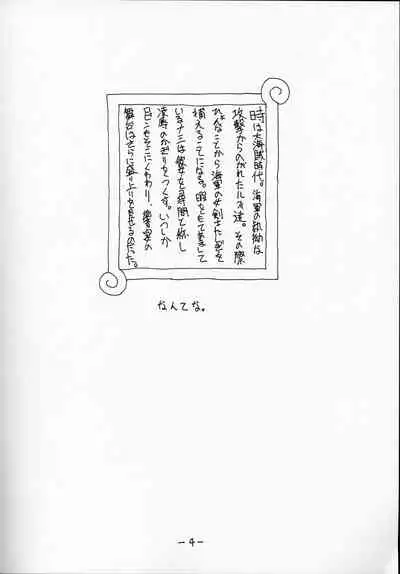 時は大海賊時代。海軍の執拗な
攻撃からのがれたルフィ達。その際
ひょんなことから海軍の女剣士たしぎを
捕えることになる。暇をもてあまして
いるナミは彼女を拷問して
凌辱のかぎりをつくす。いつしか
ロビンもそこにくわわり、饗宴の
舞台はさらに盛り上りを見せるのだった。
なんてな。
-4-